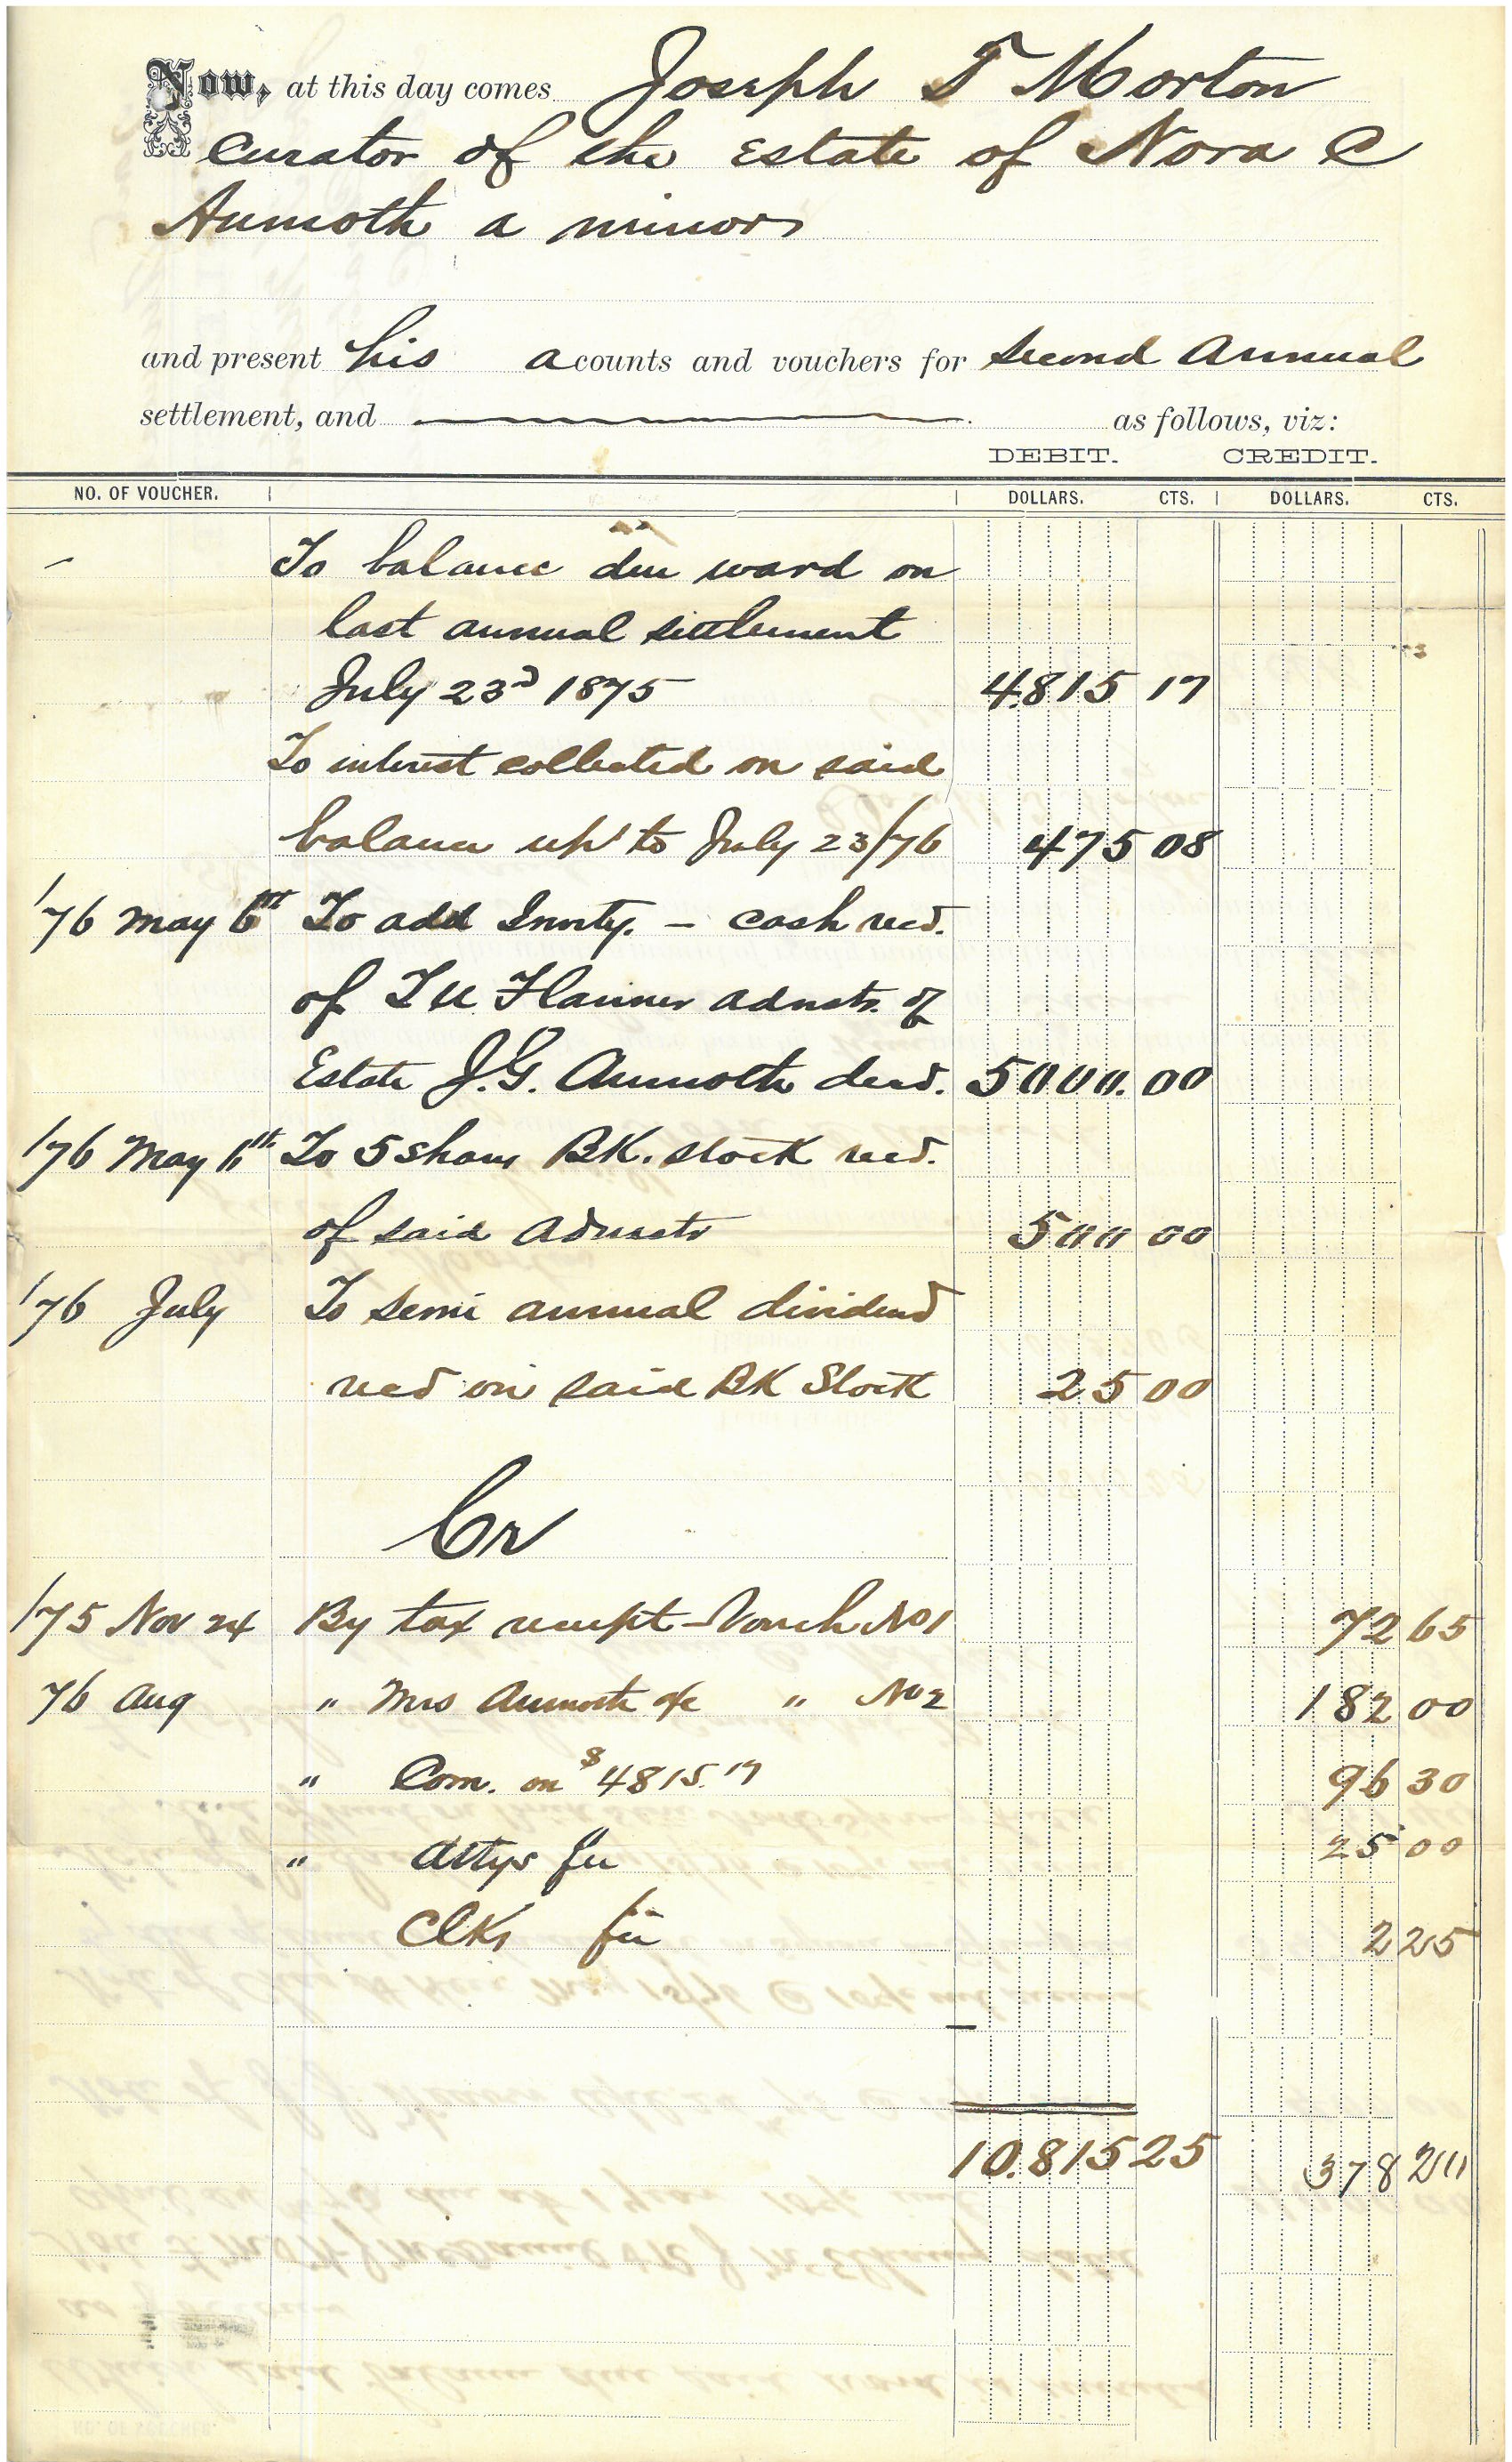 Now, at this day comes Joseph T Morton
Curator of the Estate of Nora C
Aumoth a minor
and present his acounts and vouchers for second Annual
settlement, and as follows, viz:
DEBIT. CREDIT.
NO. OF VOUCHER. DOLLARS. CTS. DOLLARS. CTS.
To balance due ward on
last annual settlement
July 23d 1875 4815 17
To interest collected on said
balance up to July 23/76 475 08
/76 May 6th To add Invty. - cash recd.
of Flanner admstr. of
Estate J.G. Aumoth decd. 5000.00
/76 May 6th To 5 shares BK. stock recd.
of said Admstr 500 00
/76 July To Semi annual dividend
recd on said BK Stock 25 00
Cr
/75 Nov 24 By tax receipt - Vouch No 1 72 65
76 Aug " Mrs Aumoth a/c " No 2 182 00
" Com. on $4815.17 96 30
" Attys fee 25 00
Clks fee 2 25
10.815 25 378 20